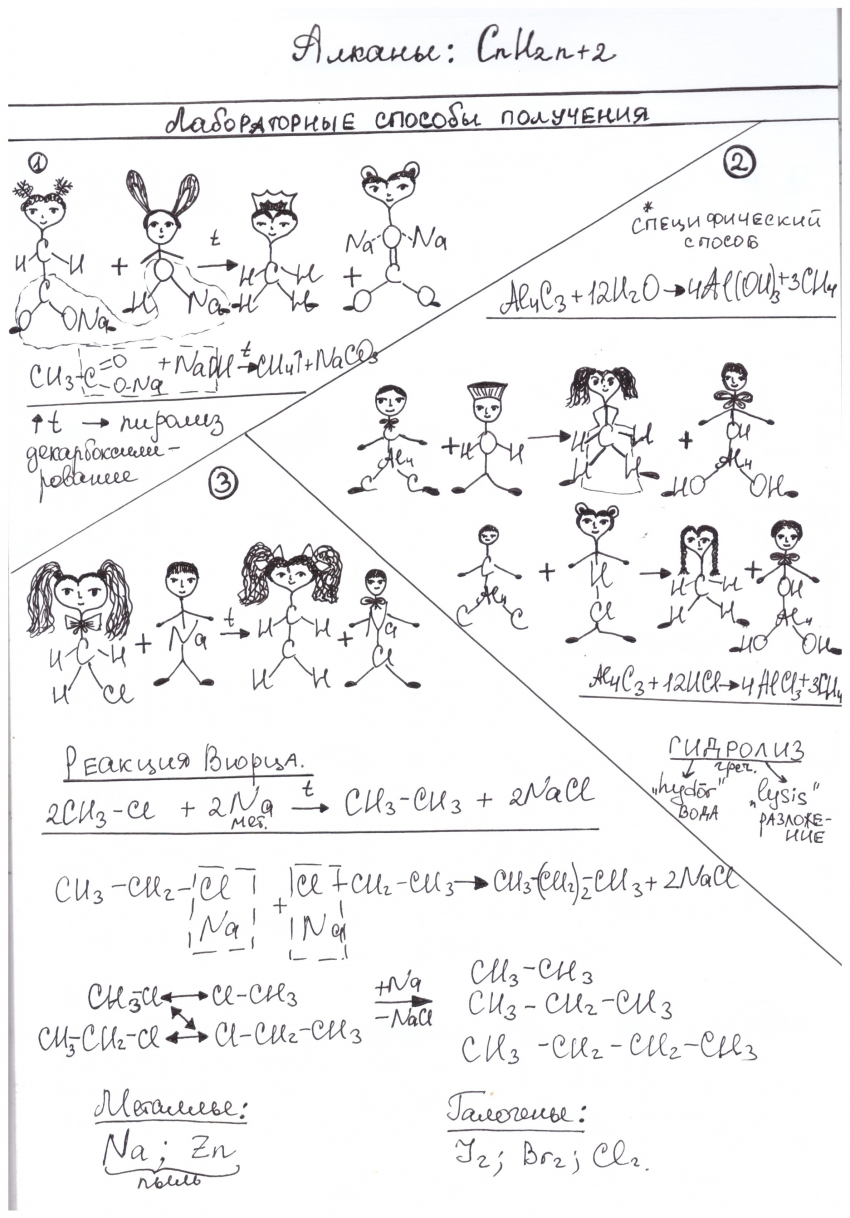 Алканы: CnH2n+2
Лабораторные способы получения
1
H C H + O t → H C H + Na O Na
C H Na H H C
O ONa O O
CH3-C=O O-Na + NaOH t→ CH4↑ + NaCO3
↑t → пиролиз
декарбоксили-
рование
2
* специфический
способ
Al4C3 + 12H2O → 4Al(OH)3 + 3CH4
C + H O H → H C H + OH
Al4 H H Al4
C C HO OH
C + H → H C H + OH
Al4 Cl H H Al4
C C HO OH
Al4C3 + 12HCl → 4AlCl3 + 3CH4
Гидролиз
греч.
„hydōr" „lysis"
вода разложе-
ние
3
H C H + Na t→ H C H + Na
H Cl H C H Cl
Реакция Вюрца.
2CH3-Cl + 2Na t→ CH3-CH3 + 2NaCl
мет.
CH3-CH2-Cl + Cl-CH2-CH3 → CH3-(CH2)2-CH3 + 2NaCl
Na Na
CH3-Cl ↔ Cl-CH3 +Na CH3-CH3
CH3-CH2-Cl ↔ Cl-CH2-CH3 -NaCl CH3-CH2-CH3
CH3-CH2-CH2-CH3
Металлы:
Na; Zn
пыль
Галогены:
I2; Br2; Cl2.